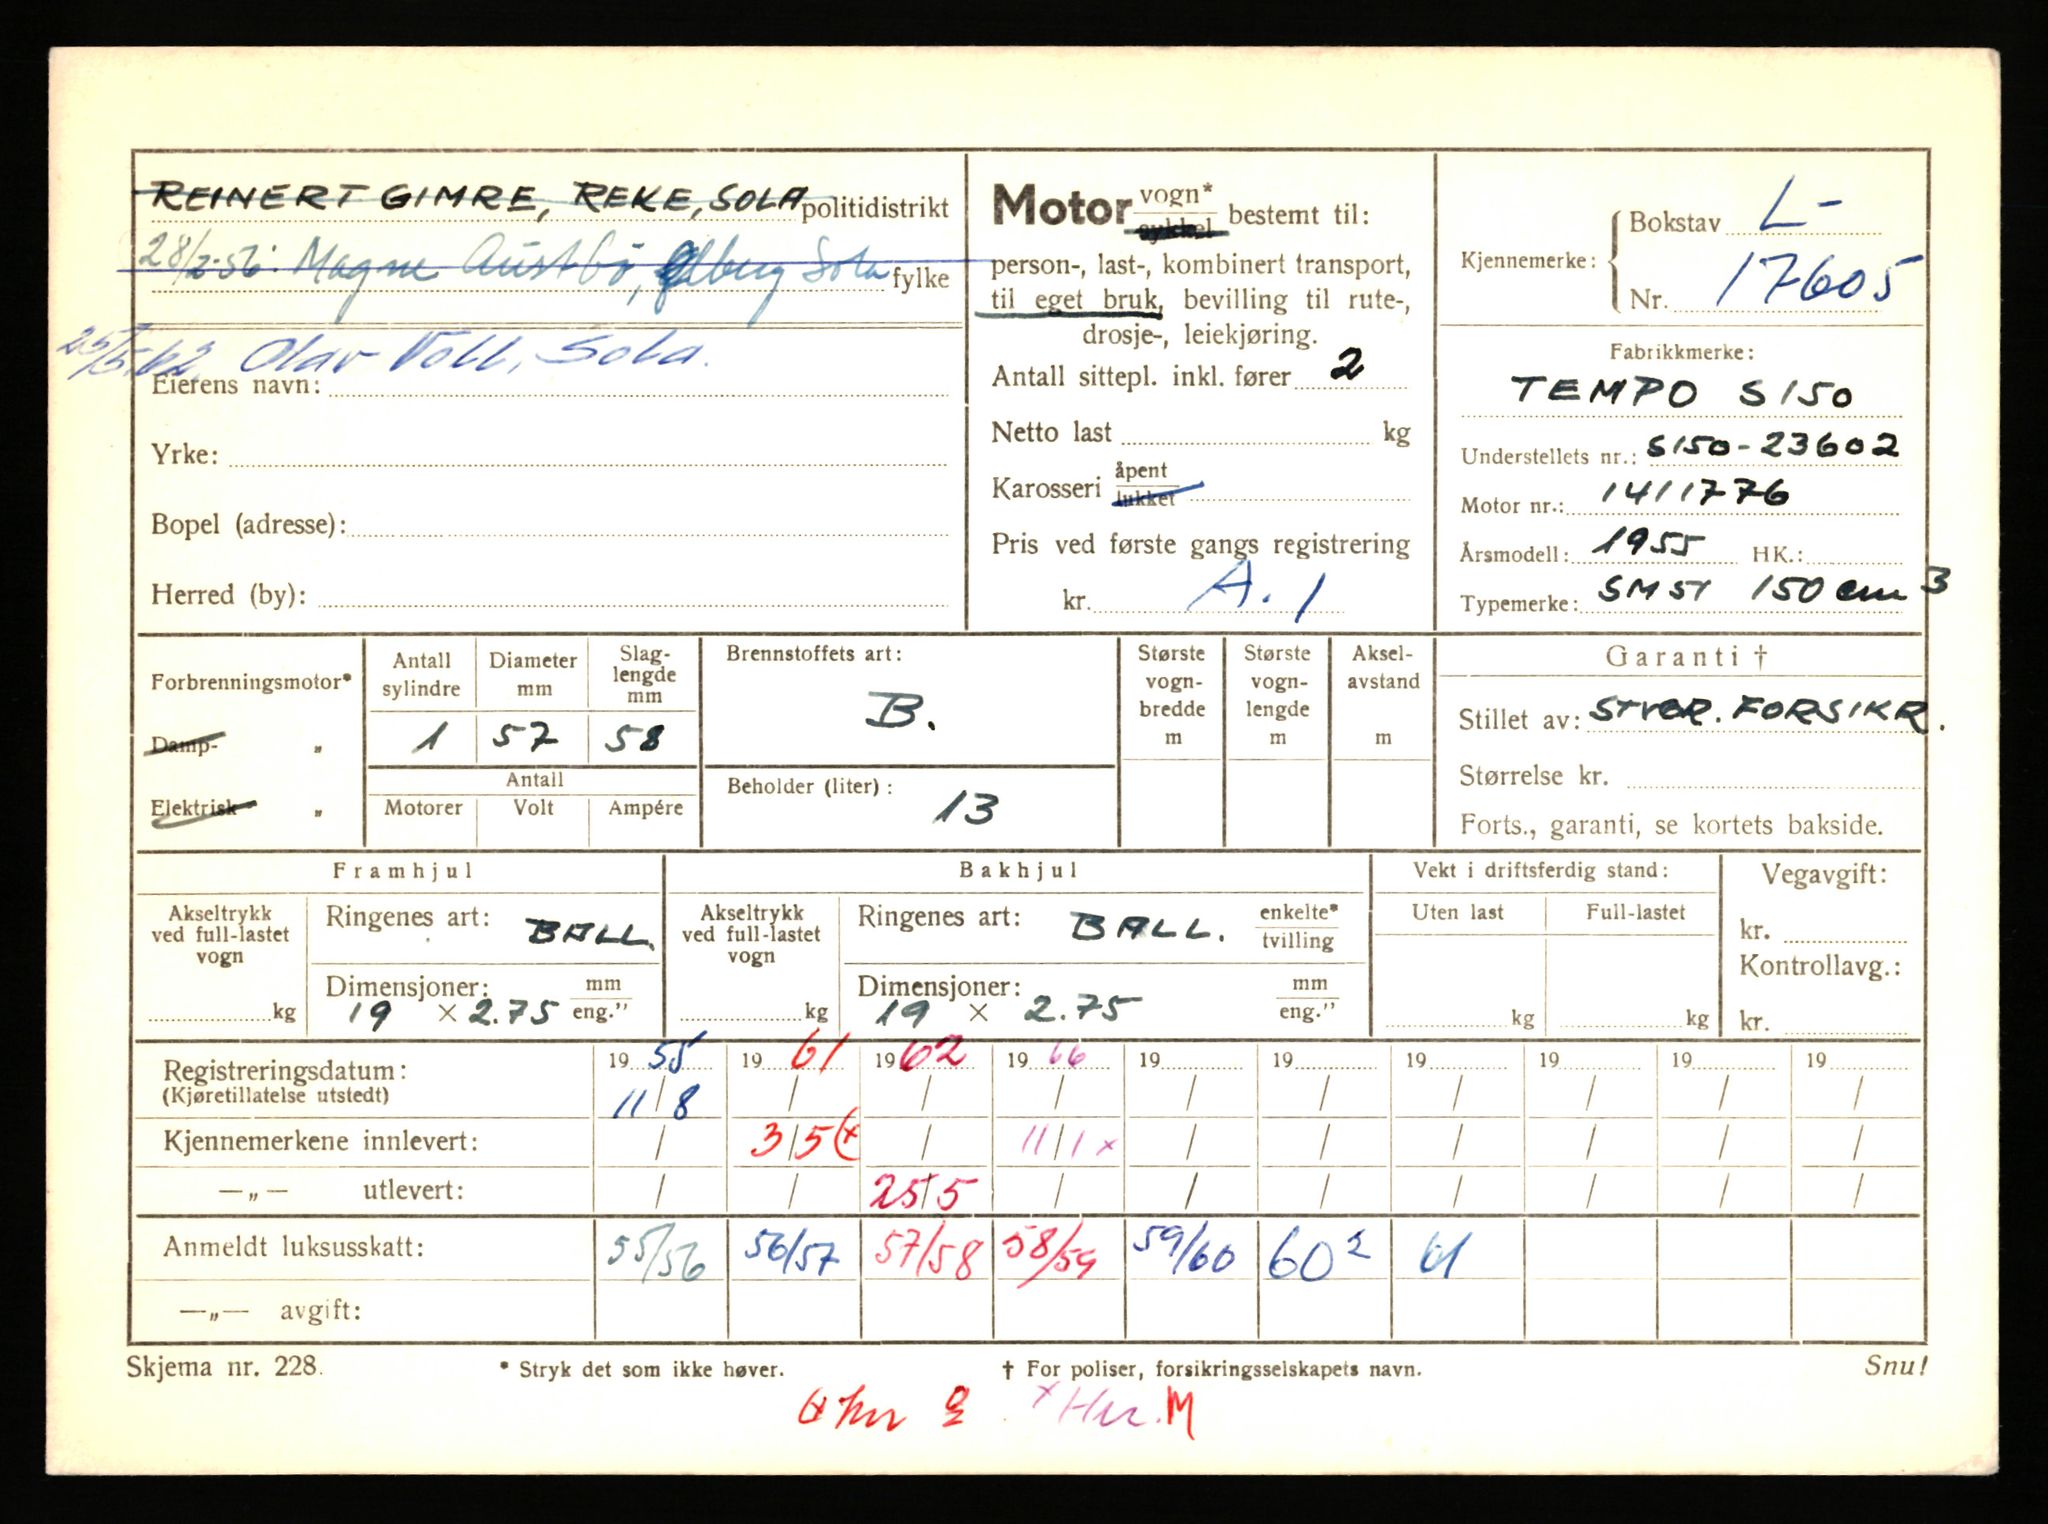 REINERT GIMRE, REKE, SOLA politidistrikt
Magne Austbö, Sola fylke
Olav Voll, Sola.
Eierens navn:
Yrke:
Bopel (adresse):
Herred (by):
Motor vogn* sykkel bestemt til:
person-, last-, kombinert transport,
til eget bruk, bevilling til rute-,
drosje-, leiekjøring.
Antall sittepl. inkl. fører 2
Netto last kg
Karosseri åpent lukket
Pris ved første gangs registrering
kr. A. 1
Kjennemerke:
Bokstav L-
Nr. 17605
Fabrikkmerke:
TEMPO S150
Understellets nr.: S150-23602
Motor nr.: 1411776
Årsmodell: 1955 HK.:
Typemerke: SM51 150 cm3
Forbrenningsmotor*
Damp- "
Elektrisk "
Antall sylindre 1
Diameter mm 57
Slag-lengde mm 58
Antall
Motorer Volt Ampére
Brennstoffets art:
B.
Beholder (liter):
13
Største vogn-bredde m
Største vogn-lengde m
Aksel-avstand m
Garanti †
Stillet av: FORSIKR.
Størrelse kr.
Forts., garanti, se kortets bakside.
Framhjul
Akseltrykk ved full-lastet vogn
kg
Ringenes art: BALL.
Dimensjoner: mm
19 × 2.75 eng."
Bakhjul
Akseltrykk ved full-lastet vogn
kg
Ringenes art: BALL. enkelte* tvilling
Dimensjoner: mm
19 × 2.75 eng."
Vekt i driftsferdig stand:
Uten last Full-lastet
kg kg
Vegavgift:
kr.
Kontrollavg.:
kr.
Registreringsdatum: 19 55 19 61 19 62 19 66 19 19 19 19 19 19
(Kjøretillatelse utstedt) 11/8 / / / / / / / / /
Kjennemerkene innlevert: / 3/5(x / 11/1 x / / / / / /
—„— utlevert: / / 25/5 / / / / / / /
Anmeldt luksusskatt: 55/56 56/57 57/58 58/59 59/60 60² 61
—„— avgift:
Skjema nr. 228. * Stryk det som ikke høver. † For poliser, forsikringsselskapets navn. Snu!
M